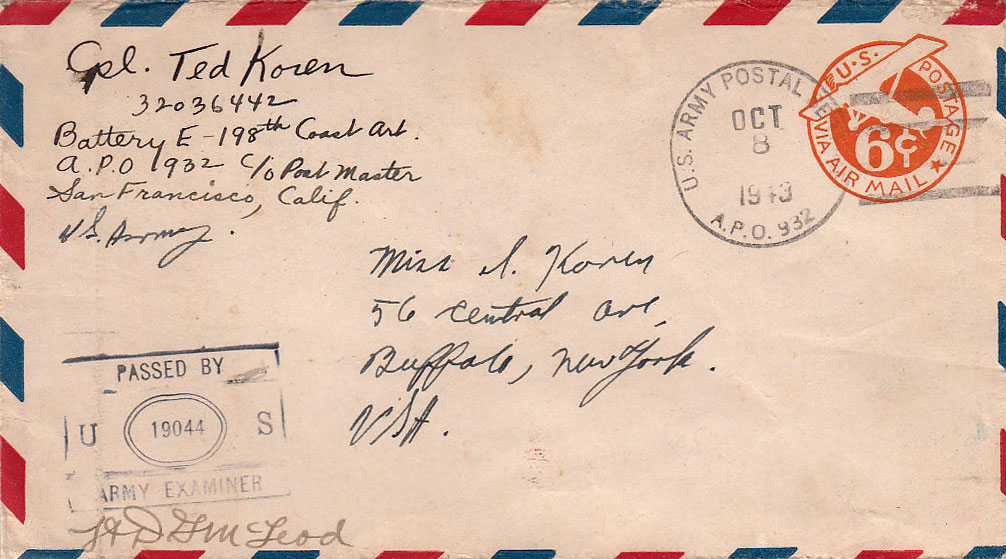 Cpl. Ted Koren
32036442
Battery E - 198th Coast Art.
A.P.O 1932 C/o Post Master
San Francisco, Calif.
U.S. Army.
U.S. ARMY POSTAL
OCT
8
1943
A.P.O. 932
U.S. POSTAGE
6¢
VIA AIR MAIL
Miss I. Koren
56 Central Ave.
Buffalo, New York.
USA.
PASSED BY
U 19044 S
ARMY EXAMINER
McLeod